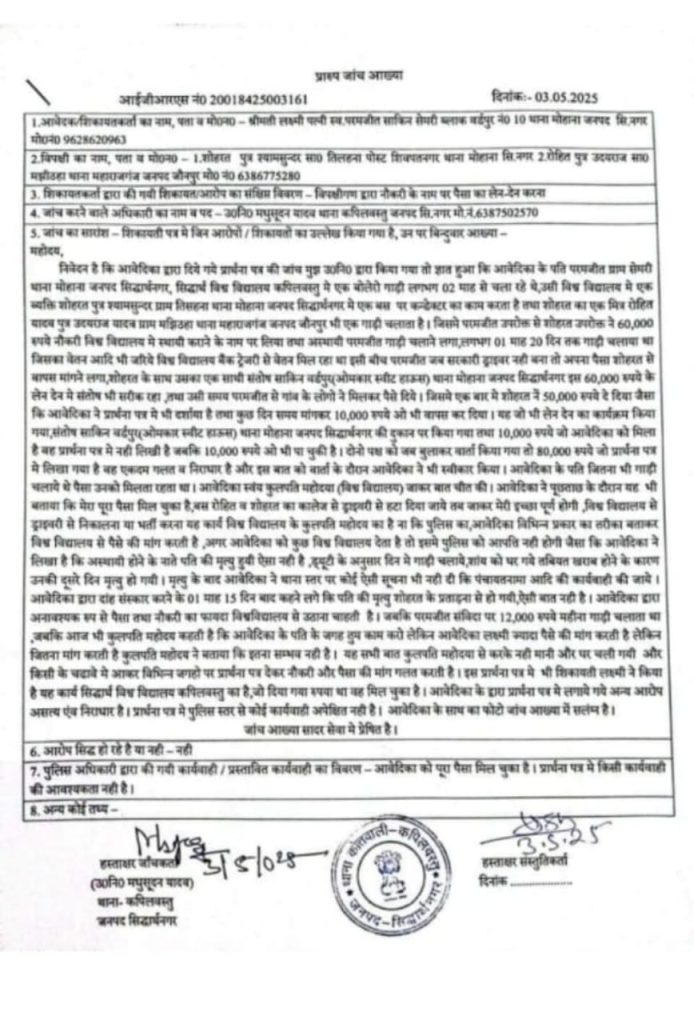 प्रारुप जांच आख्या
आईजीआरएस नं0 20018425003161 दिनांकः- 03.05.2025
1.आवेदक/शिकायतकर्ता का नाम, पता व मो0न0 – श्रीमती लक्ष्मी पत्नी स्व.परमजीत साकिन सेमरी ब्लाक बर्डपुर नं 10 थाना मोहाना जनपद सि.नगर
मो0न0 9628620963
2.विपक्षी का नाम, पता व मो0न0 – 1.शोहरत पुत्र श्यामसुन्दर सा0 तिलहना पोस्ट शिवपतनगर थाना मोहाना सि.नगर 2.रोहित पुत्र उदयराज सा0
मझिठहा थाना महाराजगंज जनपद जौनपुर मो0 नं0 6386775280
3. शिकायतकर्ता द्वारा की गयी शिकायत/आरोप का संक्षिप्त विवरण – विपक्षीगण द्वारा नौकरी के नाम पर पैसा का लेन-देन करना
4. जांच करने वाले अधिकारी का नाम व पद – उ0नि0 मधुसूदन यादव थाना कपिलवस्तु जनपद सि.नगर मो.नं.6387502570
5. जांच का सारांश – शिकायती पत्र मे जिन आरोपों / शिकायतों का उल्लेख किया गया है, उन पर बिन्दुवार आख्या –
महोदय,
निवेदन है कि आवेदिका द्वारा दिये गये प्रार्थना पत्र की जांच मुझ उ0नि0 द्वारा किया गया तो ज्ञात हुआ कि आवेदिका के पति परमजीत ग्राम सेमरी
थाना मोहाना जनपद सिद्धार्थनगर, सिद्धार्थ विश्व विद्यालय कपिलवस्तु मे एक बोलेरो गाड़ी लगभग 02 माह से चला रहे थे,उसी विश्व विद्यालय मे एक
व्यक्ति शोहरत पुत्र श्यामसुन्दर ग्राम तिसहना थाना मोहाना जनपद सिद्धार्थनगर मे एक बस पर कन्डेक्टर का काम करता है तथा शोहरत का एक मित्र रोहित
यादव पुत्र उदयराज यादव ग्राम मझिठहा थाना महाराजगंज जनपद जौनपुर भी एक गाड़ी चलाता है। जिसमे परमजीत उपरोक्त से शोहरत उपरोक्त ने 60,000
रूपये नौकरी विश्व विद्यालय मे स्थायी कराने के नाम पर लिया तथा अस्थायी परमजीत गाड़ी चलाने लगा,लगभग 01 माह 20 दिन तक गाड़ी चलाया था
जिसका वेतन आदि भी जरिये विश्व विद्यालय बैंक ट्रेजरी से वेतन मिल रहा था इसी बीच परमजीत जब सरकारी ड्राइवर नही बना तो अपना पैसा शोहरत से
वापस मांगने लगा,शोहरत के साथ उसका एक साथी संतोष साकिन बर्डपुर(ओमकार स्वीट हाऊस) थाना मोहाना जनपद सिद्धार्थनगर इस 60,000 रुपये के
लेन देन मे संतोष भी सरीक रहा ,तथा उसी समय परमजीत से गांव के लोगो ने मिलकर पैसे दिये। जिसमे एक बार मे शोहरत नें 50,000 रूपये दे दिया जैसा
कि आवेदिका ने प्रार्थना पत्र मे भी दर्शाया है तथा कुछ दिन समय मांगकर 10,000 रूपये ओ भी वापस कर दिया। यह जो भी लेन देन का कार्यक्रम किया
गया,संतोष साकिन बर्डपुर(ओमकार स्वीट हाऊस) थाना मोहाना जनपद सिद्धार्थनगर की दुकान पर किया गया तथा 10,000 रुपये जो आवेदिका को मिला
है वह प्रार्थना पत्र मे नही लिखी है जबकि 10,000 रूपये ओ भी पा चुकी है। दोनो पक्ष को जब बुलाकर वार्ता किया गया तो 80,000 रूपये जो प्रार्थना पत्र
मे लिखा गया है वह एकदम गलत व निराधार है और इस बात को वार्ता के दौरान आवेदिका ने भी स्वीकार किया। आवेदिका के पति जितना भी गाड़ी
चलाये थे पैसा उनको मिलता रहता था। आवेदिका स्वंय कुलपति महोदया (विश्व विद्यालय) जाकर बात चीत की। आवेदिका ने पूछताछ के दौरान यह भी
बताया कि मेरा पूरा पैसा मिल चुका है,बस रोहित व शोहरत का कालेज से ड्राइवरी से हटा दिया जाये तब जाकर मेरी इच्छा पूर्ण होगी ,विश्व विद्यालय से
ड्राइवरी से निकालना या भर्ती करना यह कार्य विश्व विद्यालय के कुलपति महोदय का है ना कि पुलिस का,आवेदिका विभिन्न प्रकार का तरीका बताकर
विश्व विद्यालय से पैसे की मांग करती है ,अगर आवेदिका को कुछ विश्व विद्यालय देता है तो इसमे पुलिस को आपत्ति नही होगी जैसा कि आवेदिका ने
लिखा है कि अस्थायी होने के नाते पति की मृत्यु हुयी ऐसा नही है ,ड्यूटी के अनुसार दिन मे गाड़ी चलाये,शांय को घर गये तबियत खराब होने के कारण
उनकी दूसरे दिन मृत्यु हो गयी। मृत्यु के बाद आवेदिका ने थाना स्तर पर कोई ऐसी सूचना भी नही दी कि पंचायतनामा आदि की कार्यवाही की जाये।
आवेदिका द्वारा दांह संस्कार करने के 01 माह 15 दिन बाद कहने लगे कि पति की मृत्यु शोहरत के प्रताड़ना से हो गयी,ऐसी बात नही है। आवेदिका द्वारा
अनावश्यक रुप से पैसा तथा नौकरी का फायदा विश्वविद्यालय से उठाना चाहती है। जबकि परमजीत संविदा पर 12,000 रूपये महीना गाड़ी चलाता था
,जबकि आज भी कुलपति महोदय कहती है कि आवेदिका के पति के जगह तुम काम करो लेकिन आवेदिका लक्ष्मी ज्यादा पैसे की मांग करती है लेकिन
जितना मांग करती है कुलपति महोदय ने बताया कि इतना सम्भव नही है। यह सभी बात कुलपति महोदया से करके नही मानी और घर चली गयी और
किसी के चढावे मे आकर विभिन्न जगहो पर प्रार्थना पत्र देकर नौकरी और पैसा की मांग गलत करती है। इस प्रार्थना पत्र मे भी शिकायती लक्ष्मी ने किया
है यह कार्य सिद्धार्थ विश्व विद्यालय कपिलवस्तु का है,जो दिया गया रुपया था वह मिल चुका है। आवेदिका के द्वारा प्रार्थना पत्र मे लगाये गये अन्य आरोप
असत्य एंव निराधार है। प्रार्थना पत्र मे पुलिस स्तर से कोई कार्यवाही अपेक्षित नही है। आवेदिका के साथ का फोटो जांच आख्या में सलंग्न है।
जांच आख्या सादर सेवा मे प्रेषित है।
6. आरोप सिद्ध हो रहे है या नही – नही
7. पुलिस अधिकारी द्वारा की गयी कार्यवाही / प्रस्तावित कार्यवाही का विवरण – आवेदिका को पूरा पैसा मिल चुका है। प्रार्थना पत्र मे किसी कार्यवाही
की आवश्यकता नही है।
8. अन्य कोई तथ्य –
3/5/025
3.5.25
हस्ताक्षर जांचकर्ता
(उ0नि0 मधुसूदन यादव)
थाना- कपिलवस्तु
जनपद सिद्धार्थनगर
थाना कोतवाली-कपिलवस्तु
जनपद-सिद्धार्थनगर
हस्ताक्षर संस्तुतिकर्ता
दिनांक ..................